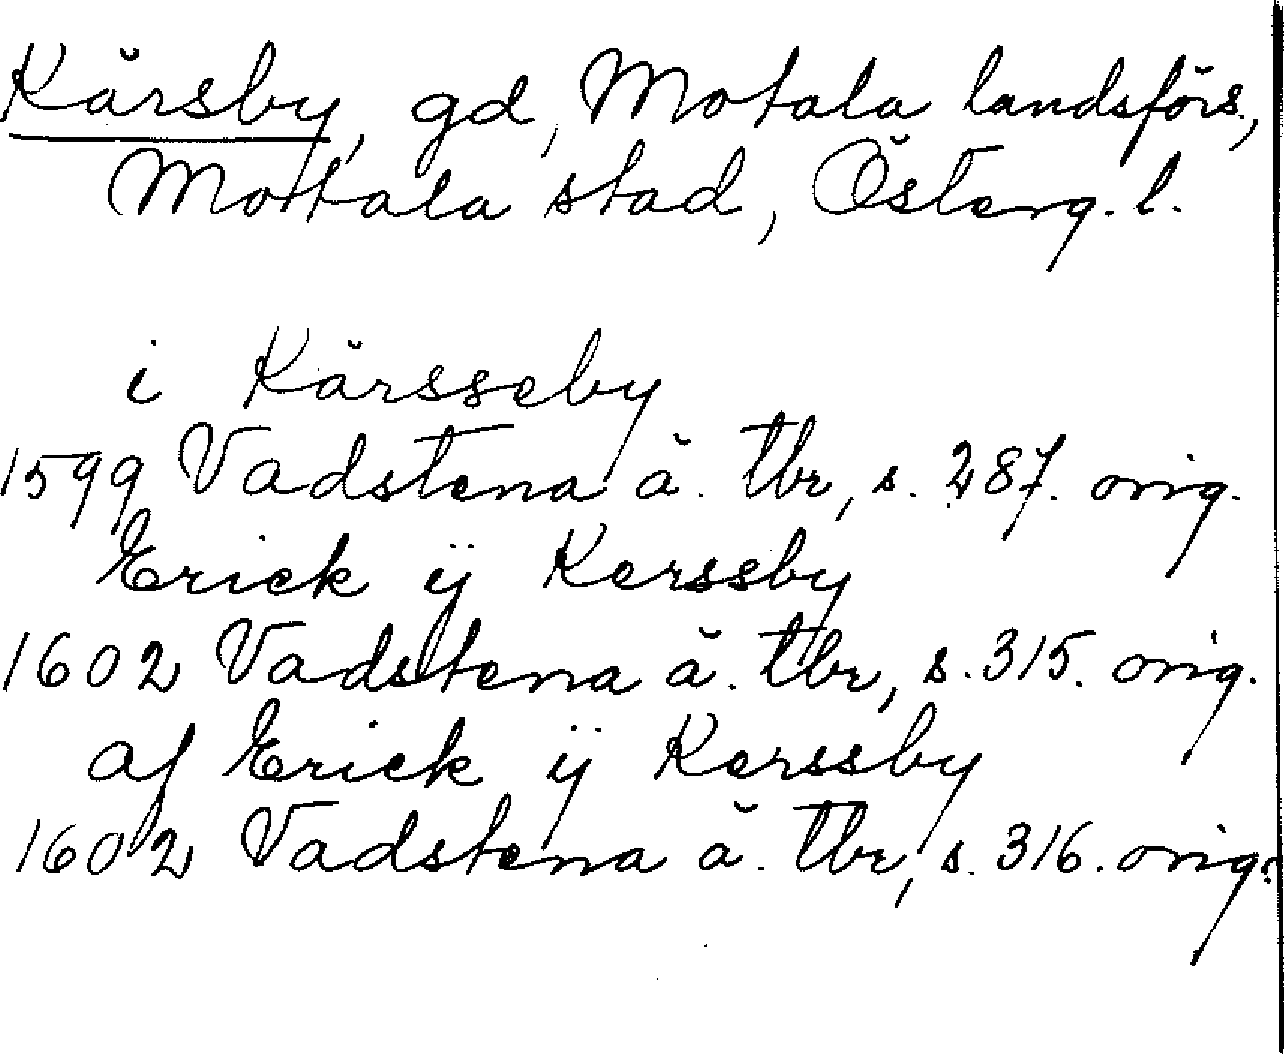 Kärsby, gd, Motala landsförs.,
Motala stad, Österg. l.
i Kärsseby
1599 Vadstena ä. tbr, s. 287. orig.
Erick ÿ Kerssby
1602 Vadstena ä. tbr, s. 315. orig.
af Erick ÿ Kerssby
1602 Vadstena ä. tbr, s. 316. orig.